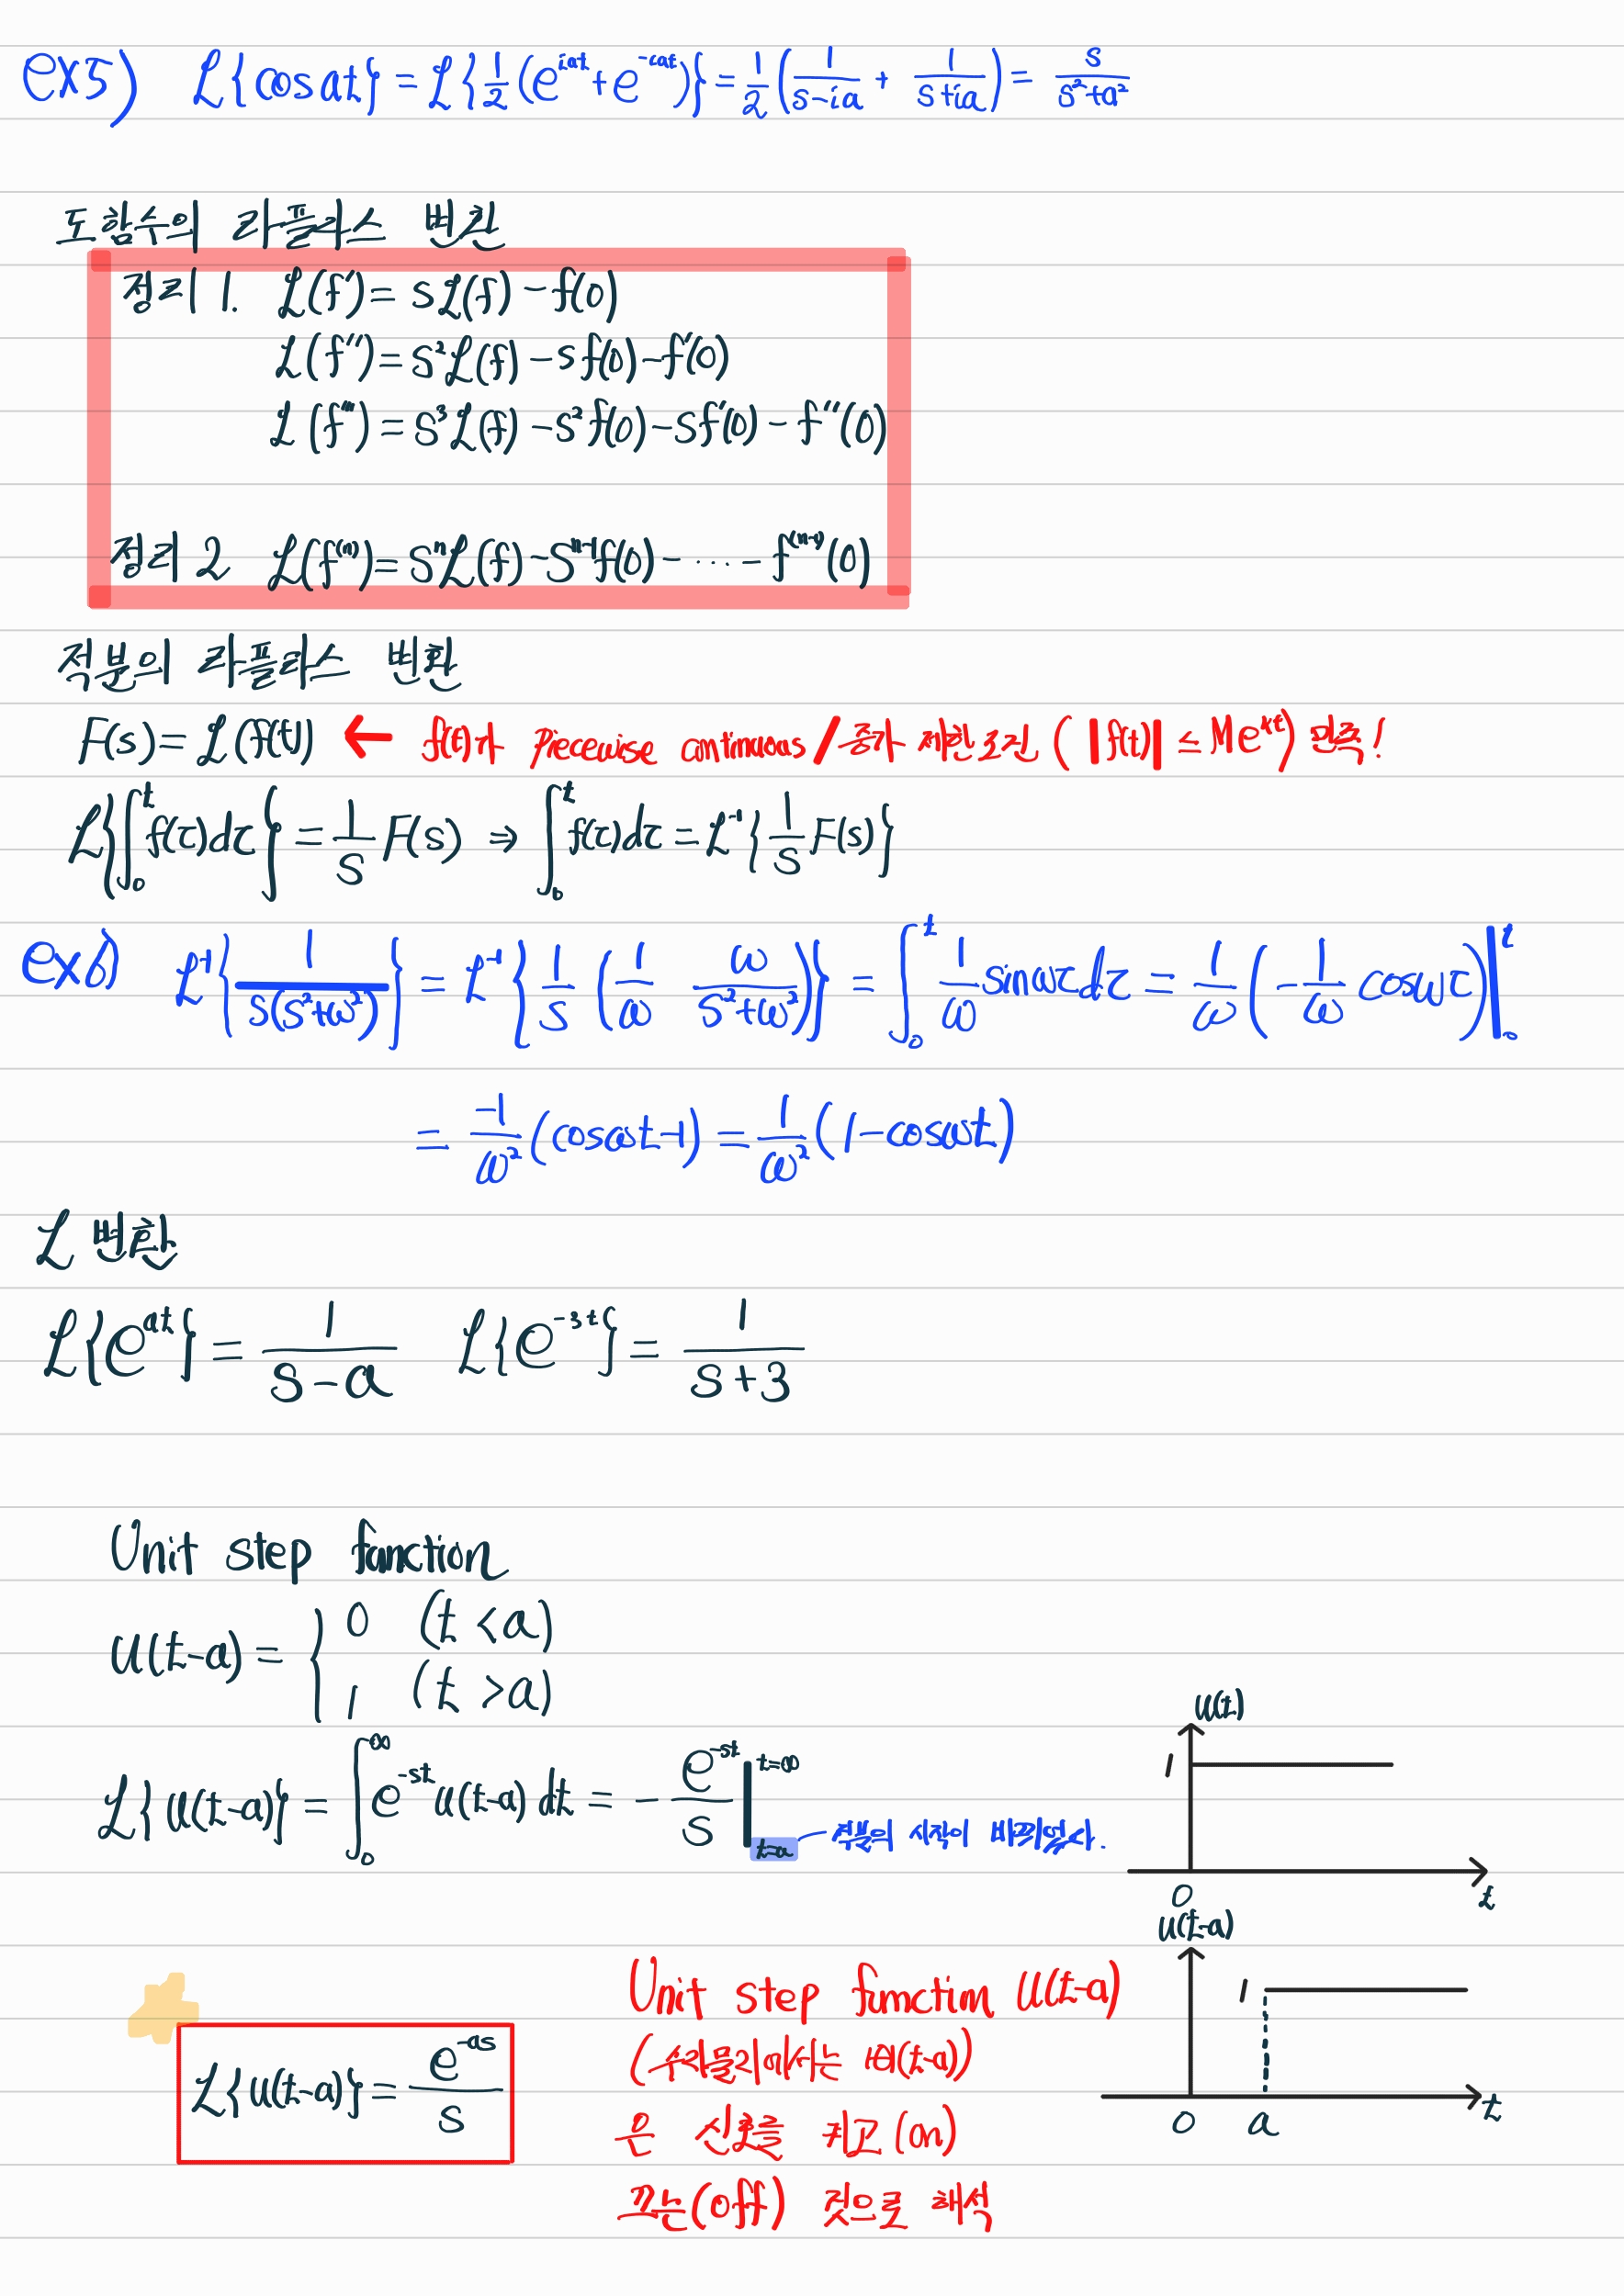 ex5) ℒ{cos at} = ℒ{1/2(e^{iat}+e^{-iat})} = 1/2(1/(s-ia) + 1/(s+ia)) = s/(s²+a²)
도함수의 라플라스 변환
정리 1. ℒ(f') = sℒ(f) - f(0)
ℒ(f'') = s²ℒ(f) - sf(0) - f'(0)
ℒ(f''') = s³ℒ(f) - s²f(0) - sf'(0) - f''(0)
정리 2 ℒ(f^{(n)}) = s^nℒ(f) - s^{n-1}f(0) - ···· - f^{(n-1)}(0)
적분의 라플라스 변환
F(s) = ℒ(f(t)) ← f(t)가 Piecewise continuous / 증가 제한 조건 (|f(t)| ≤ Me^{kt}) 만족!
ℒ{∫_0^t f(τ)dτ} = 1/s F(s) ⇒ ∫_0^t f(τ)dτ = ℒ^{-1}{1/s F(s)}
ex6) ℒ^{-1}{1/(s(s²+ω²))} = ℒ^{-1}{1/s (1/ω ω/(s²+ω²))} = ∫_0^t 1/ω sinωτdτ = 1/ω(-1/ω cosωτ)|_0^t
= -1/ω² (cosωt-1) = 1/ω² (1-cosωt)
ℒ 변환
ℒ{e^{at}} = 1/(s-a) ℒ{e^{-3t}} = 1/(s+3)
Unit step function
u(t-a) = { 0 (t<a)
1 (t>a)
ℒ{u(t-a)} = ∫_0^∞ e^{-st}u(t-a)dt = -e^{-st}/s |_{t=a}^{t=∞} 적분의 시작이 바뀌었다.
u(t)
1
0 t
u(t-a)
1
0 a t
ℒ{u(t-a)} = e^{-as}/s
Unit step function u(t-a)
(수리물리에서는 Θ(t-a))
은 신호를 켜고 (on)
끄는(off) 것으로 해석